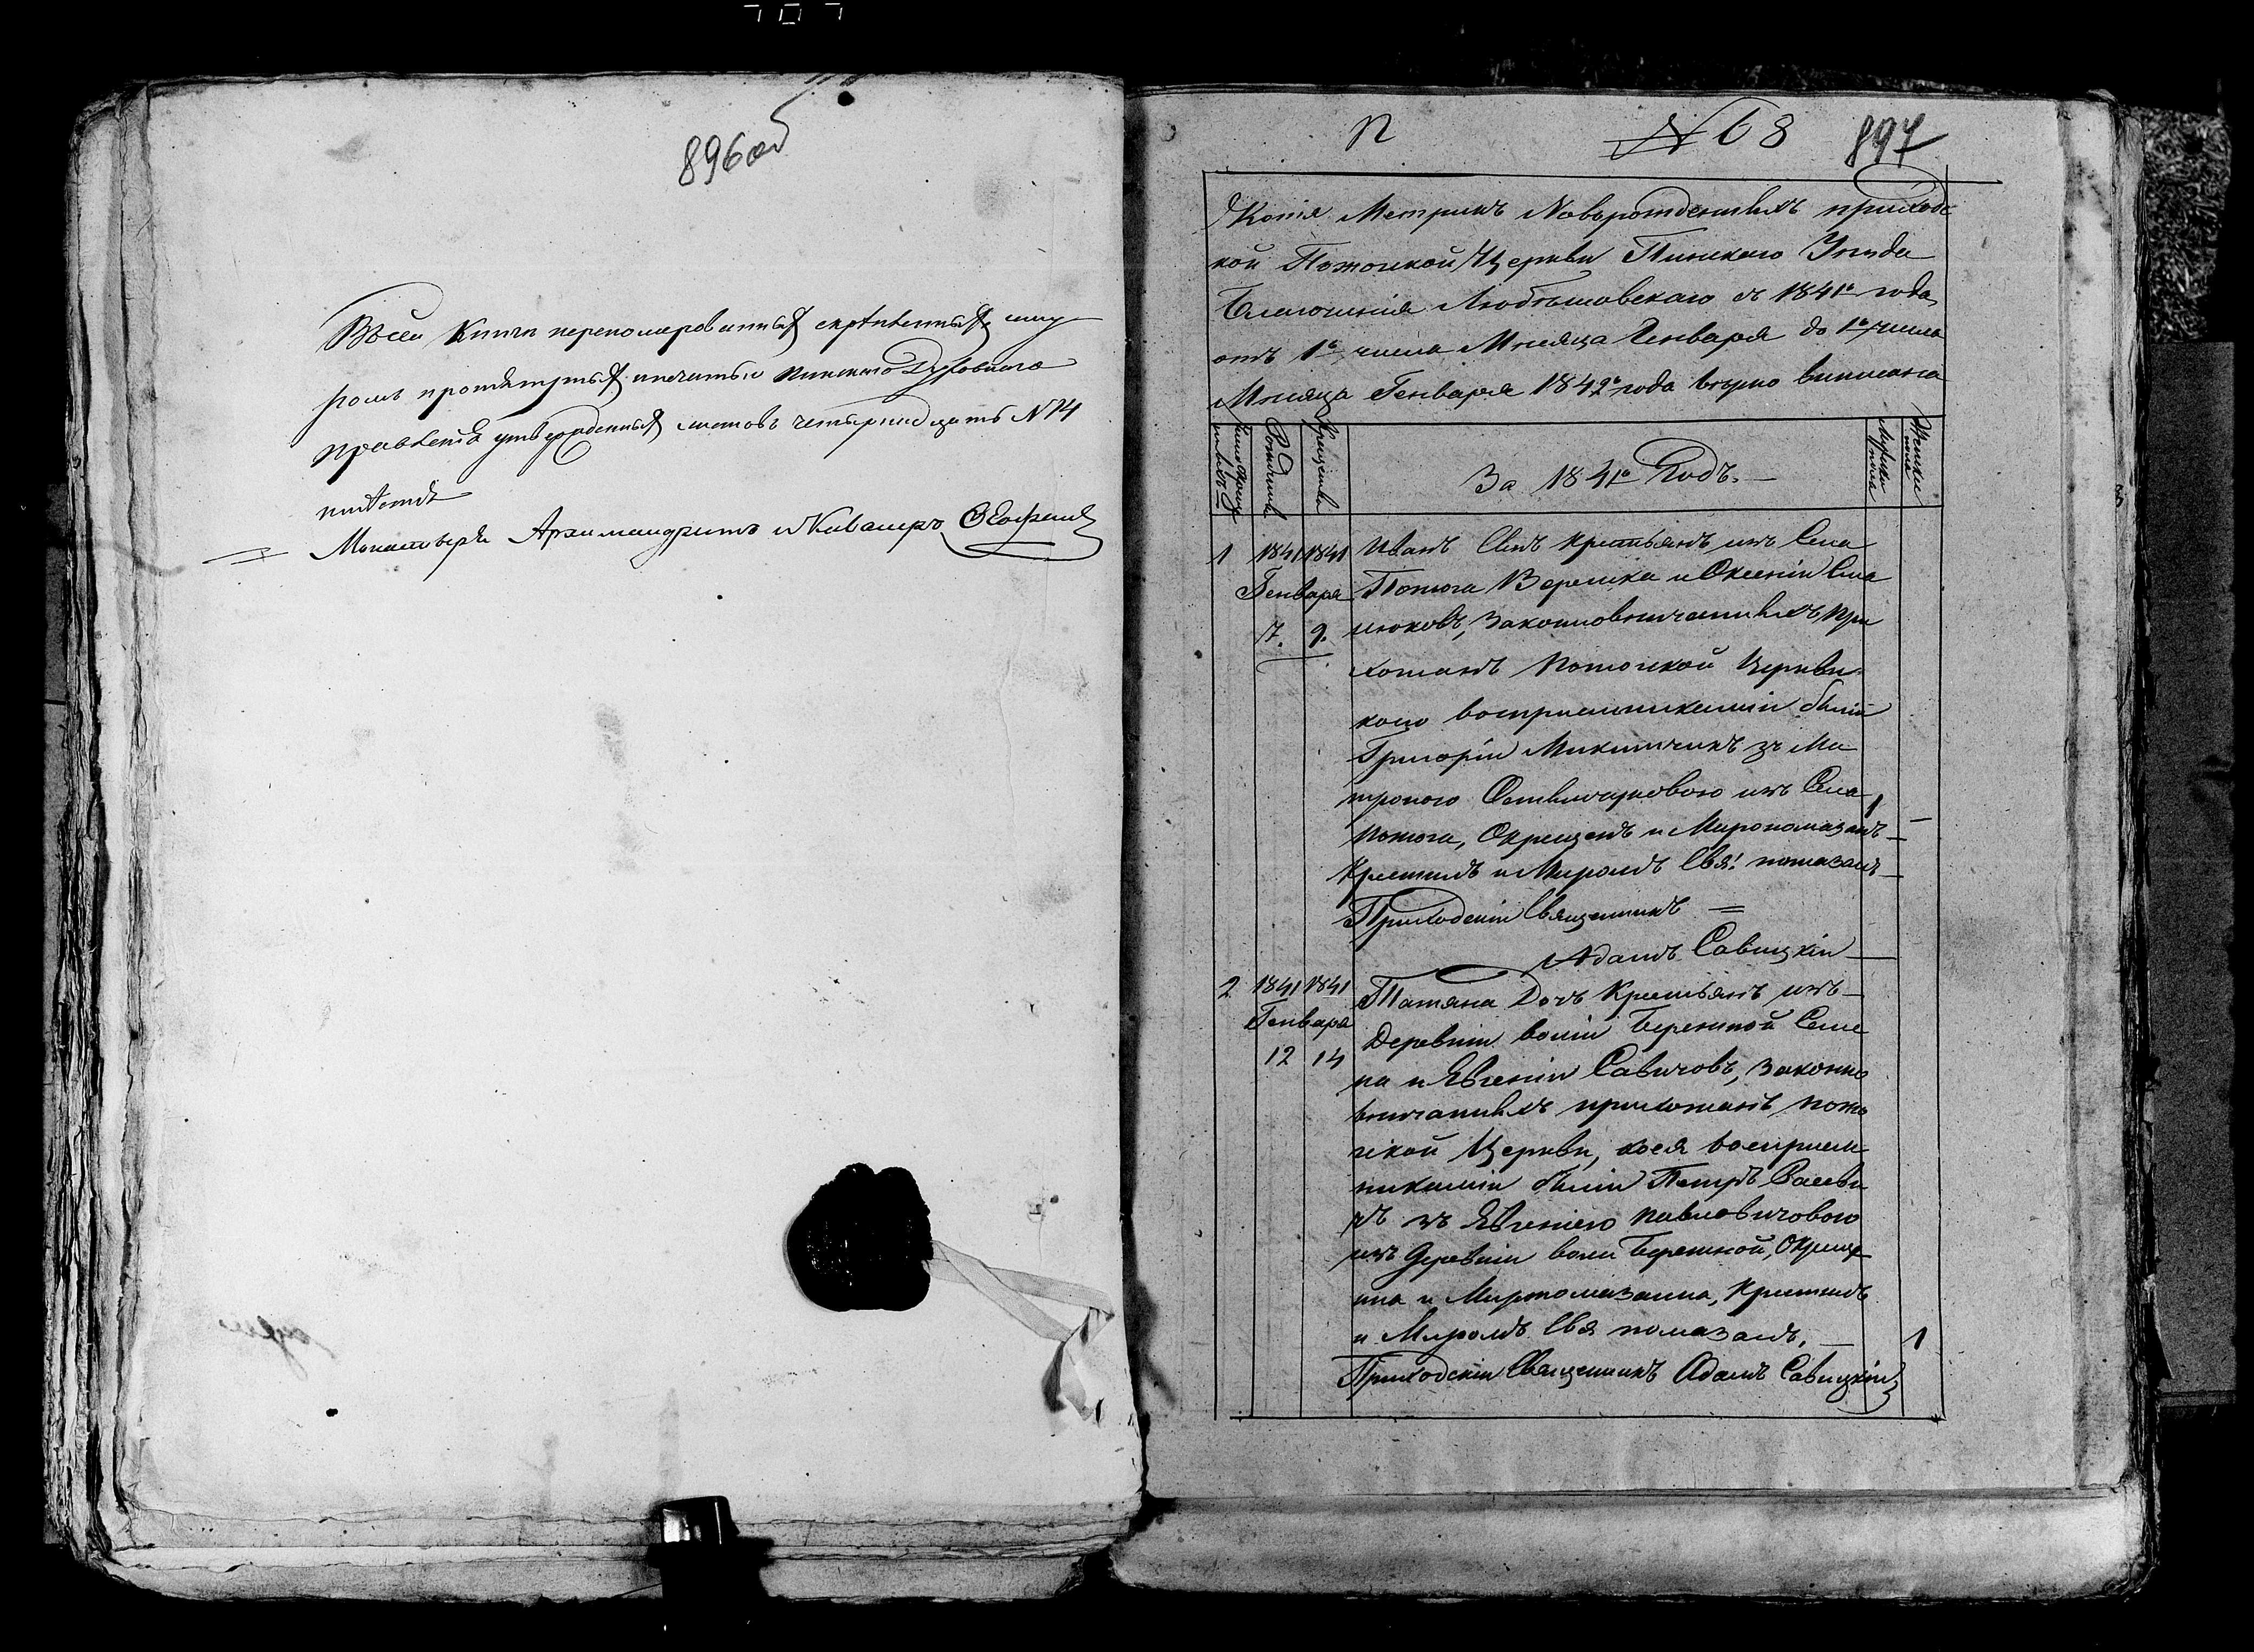 707
896об
Всей Книги перенумерованныя скрѣпленныя шну
ромъ протянутыя и печатью Пинского Духовного
Правленія утвержденныя листовъ четырнадцать N 14
Монастыря Архимандритъ и Кавалеръ
П № 68 897
Копія Метрикъ Новорожденныхъ приход
кой Пожогской Церкви Пинскаго Уезда
Благочинія Любешовскаго съ 1841го года
отъ 1го числа Мнсяца Генваря до 1го числа
Мнсяца Генваря 1842го года вѣрно выписана
Рождения
Крещения
За 1841й Годъ.
Мужеска пола
Женска пола
1 1841 1841 Иванъ Сынъ Крестьянъ изъ Села
Генваря Пожога Верешка и Оксеніи Сма
7. 9. люковъ, Законновенчанныхъ, при
хожанъ Пожогской Церкви
коего воспрыемникамы былы
Григорій Микитчикъ зъ Ма
троною из Села 1
Пожога, Окрещенъ и Миропомазанъ —
Крестилъ и Миромъ Свя: помазалъ —
Приходскій Священникъ =
Адамъ Савицкій —
2 1841 1841 Татяна Дочъ Крестьянъ изъ —
Генваря Деревни Воли Бережной Семе
12 14 на и Евгеніи Савичовъ, Законно
венчанныхъ прихожанъ Пожо
гской Церкви, коея восприем
никамы былы Петръ
чъ зъ Евгеніею Павловичовою
изъ Деревни Воли Бережной, Окреще
нна и Миропомазанна, Крестилъ
и Миромъ Свя помазалъ. — 1
Приходскій Священникъ Адамъ Савицкій